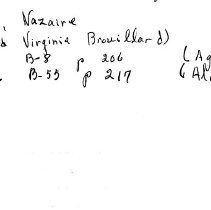 Nazaire
d Virginia Brouillard)
B-8 p 206 (Ag
B-55 p 217 (Al